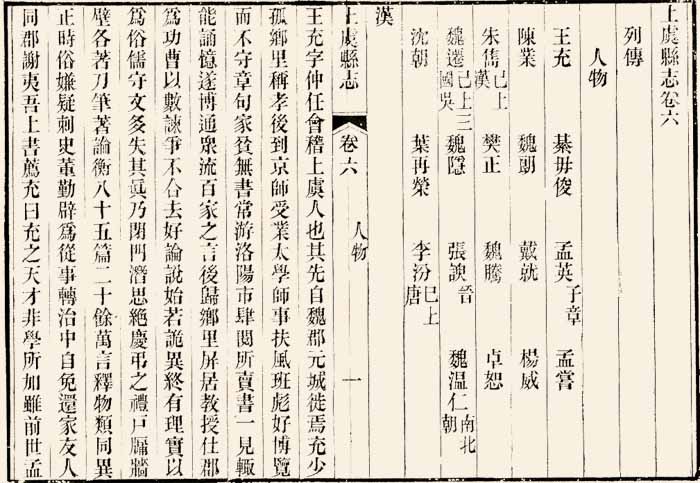 上虞縣志卷六
列傳
人物
王充 綦毋俊 孟英子章 孟嘗
陳業 魏朗 戴就 楊威
朱儁已上漢 樊正 魏騰 卓恕
魏遷已上三國吳 魏隱 張諛晉 魏温仁南北朝
沈朝 葉再榮 李汾已上唐
漢
上虞縣志 卷六 人物 一
王充字仲任會稽上虞人也其先自魏郡元城徙焉充少
孤鄉里稱孝後到京師受業太學師事扶風班彪好博覽
而不守章句家貧無書常游洛陽市肆閱所賣書一見輒
能誦憶遂博通衆流百家之言後歸鄉里屏居教授仕郡
為功曹以數諫爭不合去好論說始若詭異終有理實以
為俗儒守文多失其眞乃閉門潛思絶慶弔之禮戸牖牆
壁各著刀筆著論衡八十五篇二十餘萬言釋物類同異
正時俗嫌疑刺史董勤辟為從事轉治中自免還家友人
同郡謝夷吾上書薦充曰充之天才非學所加雖前世孟